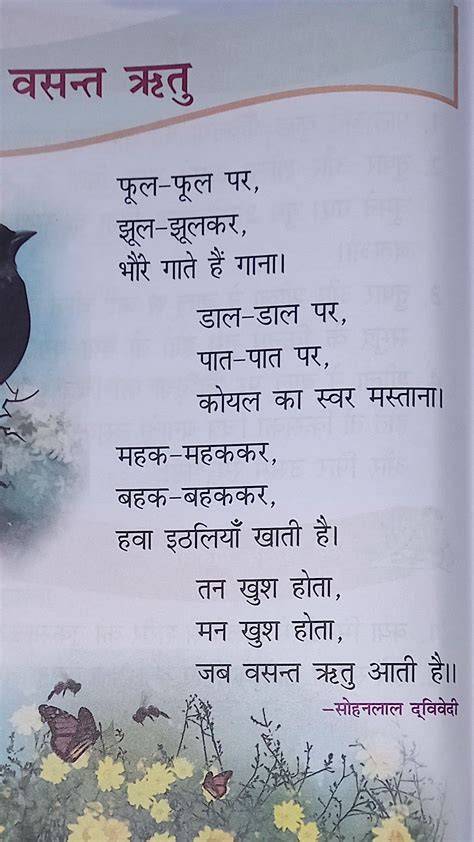 वसन्त ऋतु
फूल-फूल पर,
झूल-झूलकर,
भौंरे गाते हैं गाना।
डाल-डाल पर,
पात-पात पर,
कोयल का स्वर मस्ताना।
महक-महककर,
बहक-बहककर,
हवा इठलियाँ खाती है।
तन खुश होता,
मन खुश होता,
जब वसन्त ऋतु आती है॥
–सोहनलाल द्‌विवेदी